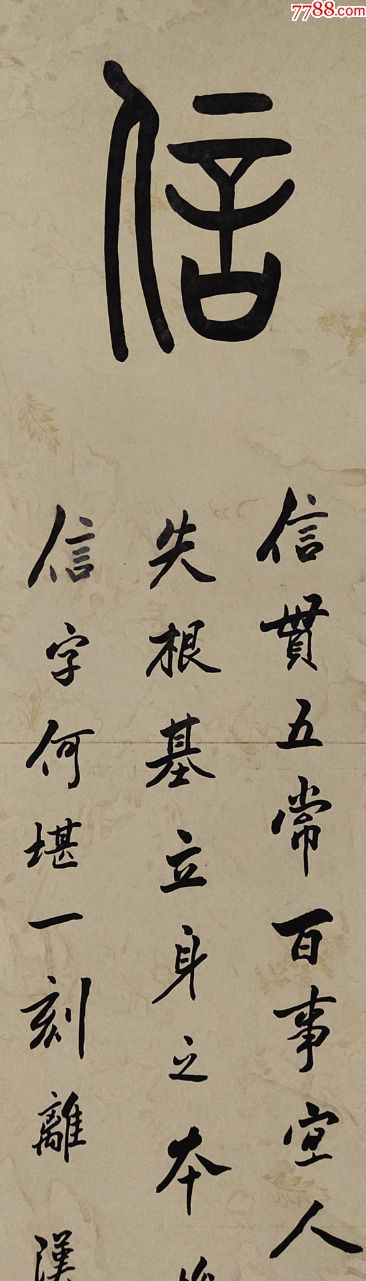 7788.com
信
信貫五常百事宜人
失根基立身之本
信字何堪一刻離漢